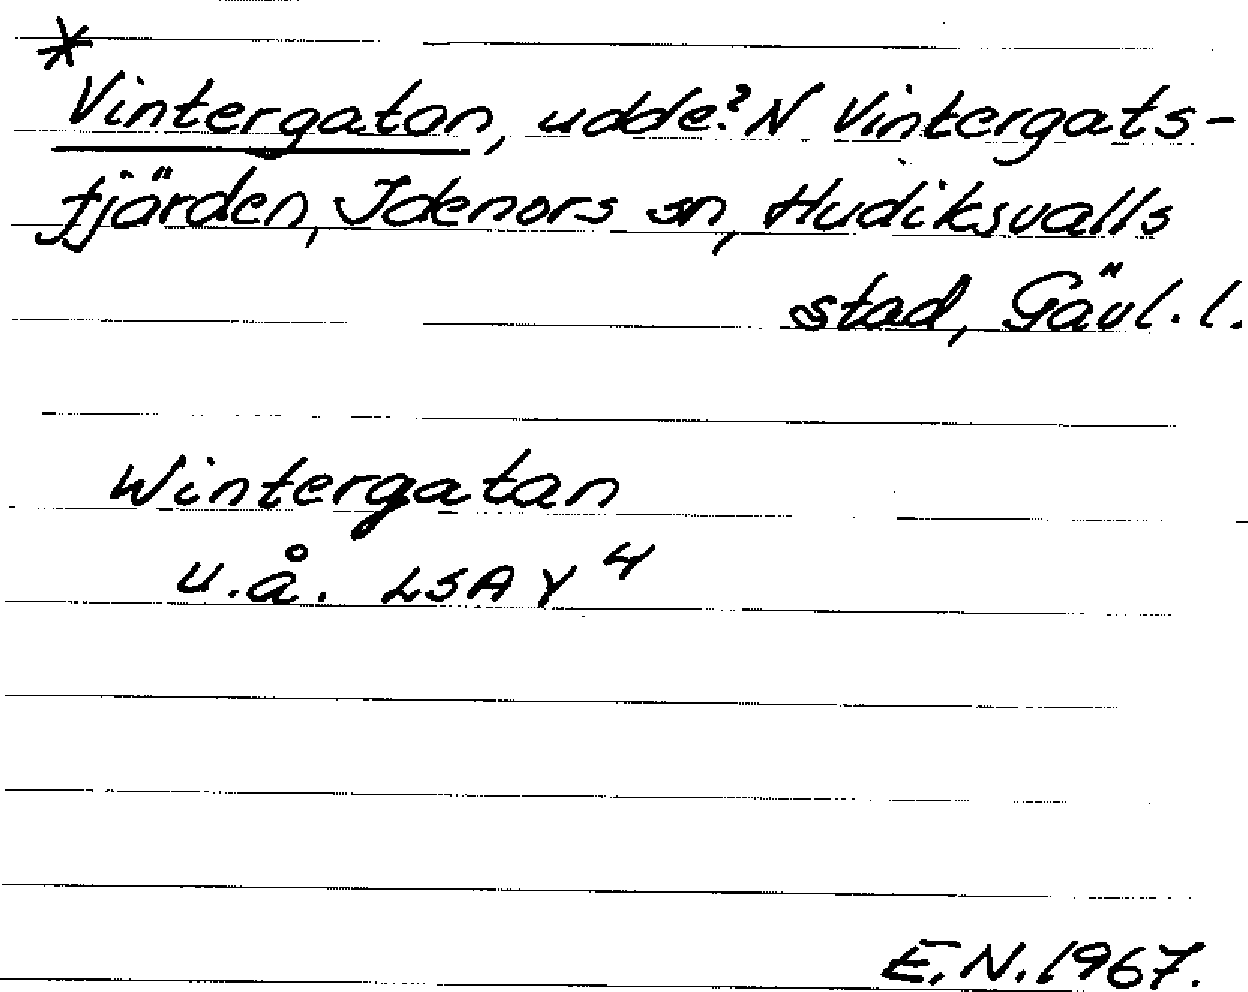 *
Vintergatan, udde? N Vintergats-
fjärden, Idenors sn, Hudiksvalls
stad, Gävl. l.
Wintergatan
u.å. LSA Y 4
E.N. 1967.